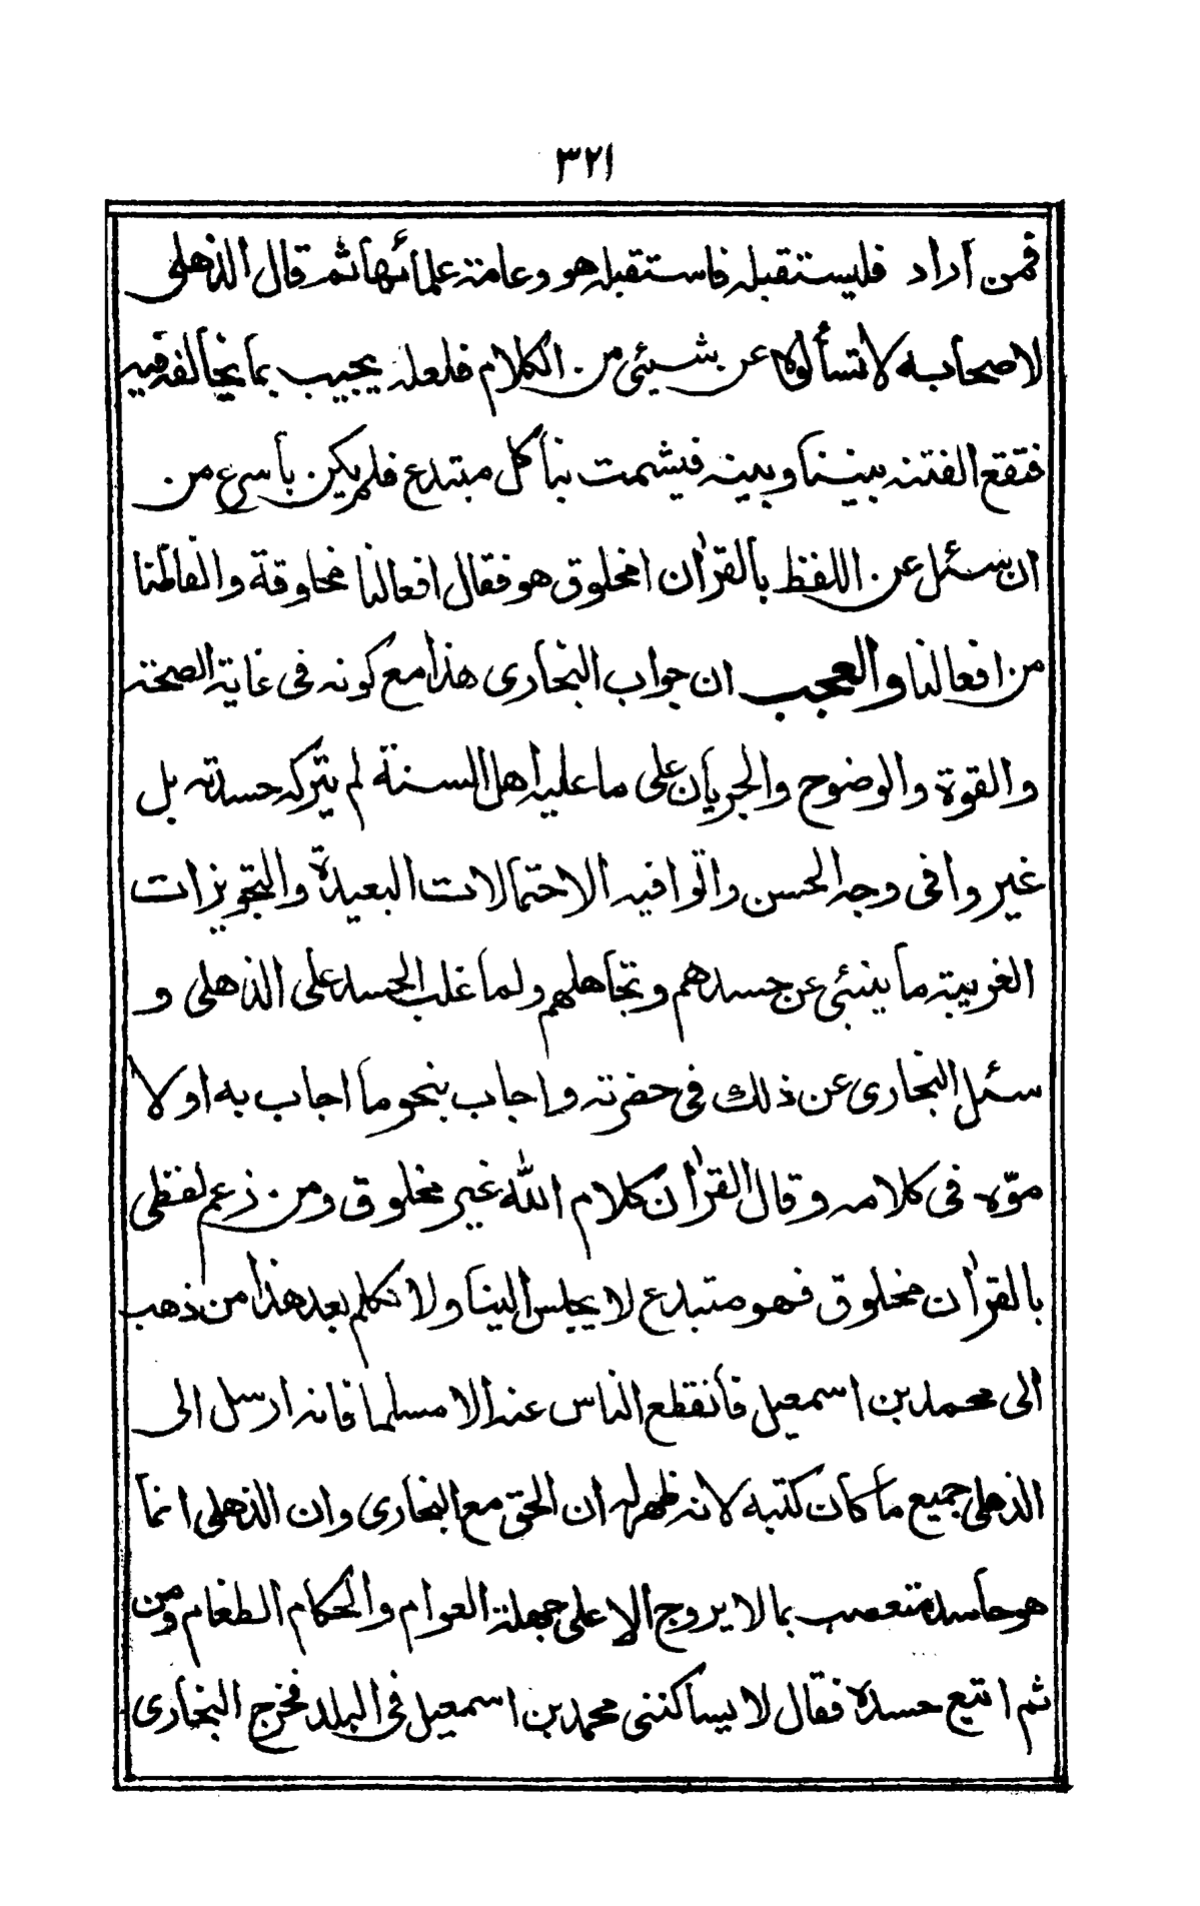 ٣٢١
فمن اراد فليستقبله فاستقبله هو وعامة علمائها ثم قال الذهلى
لاصحابه لا تسألوه عن شيئى من الكلام فلعله يجيب بما يخالفه فيه
فتقع الفتنة بيننا وبينه فيشمت بنا كل مبتدع فلم يكن باسرع من
ان سئل عن اللفظ بالقرأن امخلوق هو فقال افعالنا مخلوقة والفاظنا
من افعالنا والعجب ان جواب البخارى هذا مع كونه فى غاية الصحة
والقوة والوضوح والجريان على ما عليه اهل السنة لم يتركه حسدته بل
غير وافى وجه الحسن واتوا فيه الاحتمالات البعيدة والتجويزات
الغريبة ما ينبئى عن حسدهم وتجاهلهم ولما غلب الحسد على الذهلى و
سئل البخارى عن ذلك فى حضرته واجاب بنحو ما اجاب به اولا
موّه فى كلامه وقال القرأن كلام الله غير مخلوق ومن زعم لفظى
بالقرأن مخلوق فهو متبدع لا يجلس الينا ولا نكلم بعد هذا من ذهب
الى محمد بن اسمعيل فانقطع الناس عنه الا مسلما فانه ارسل الى
الذهلى جميع ما كان كتبه لانه ظهر له ان الحق مع البخارى وان الذهلى انما
هو حاسد متعصب بما لا يروج الا على جهلة العوام والحكام الطغام ومن
ثم اتبع حسده فقال لا يساكننى محمد بن اسمعيل فى البلد فخرج البخارى